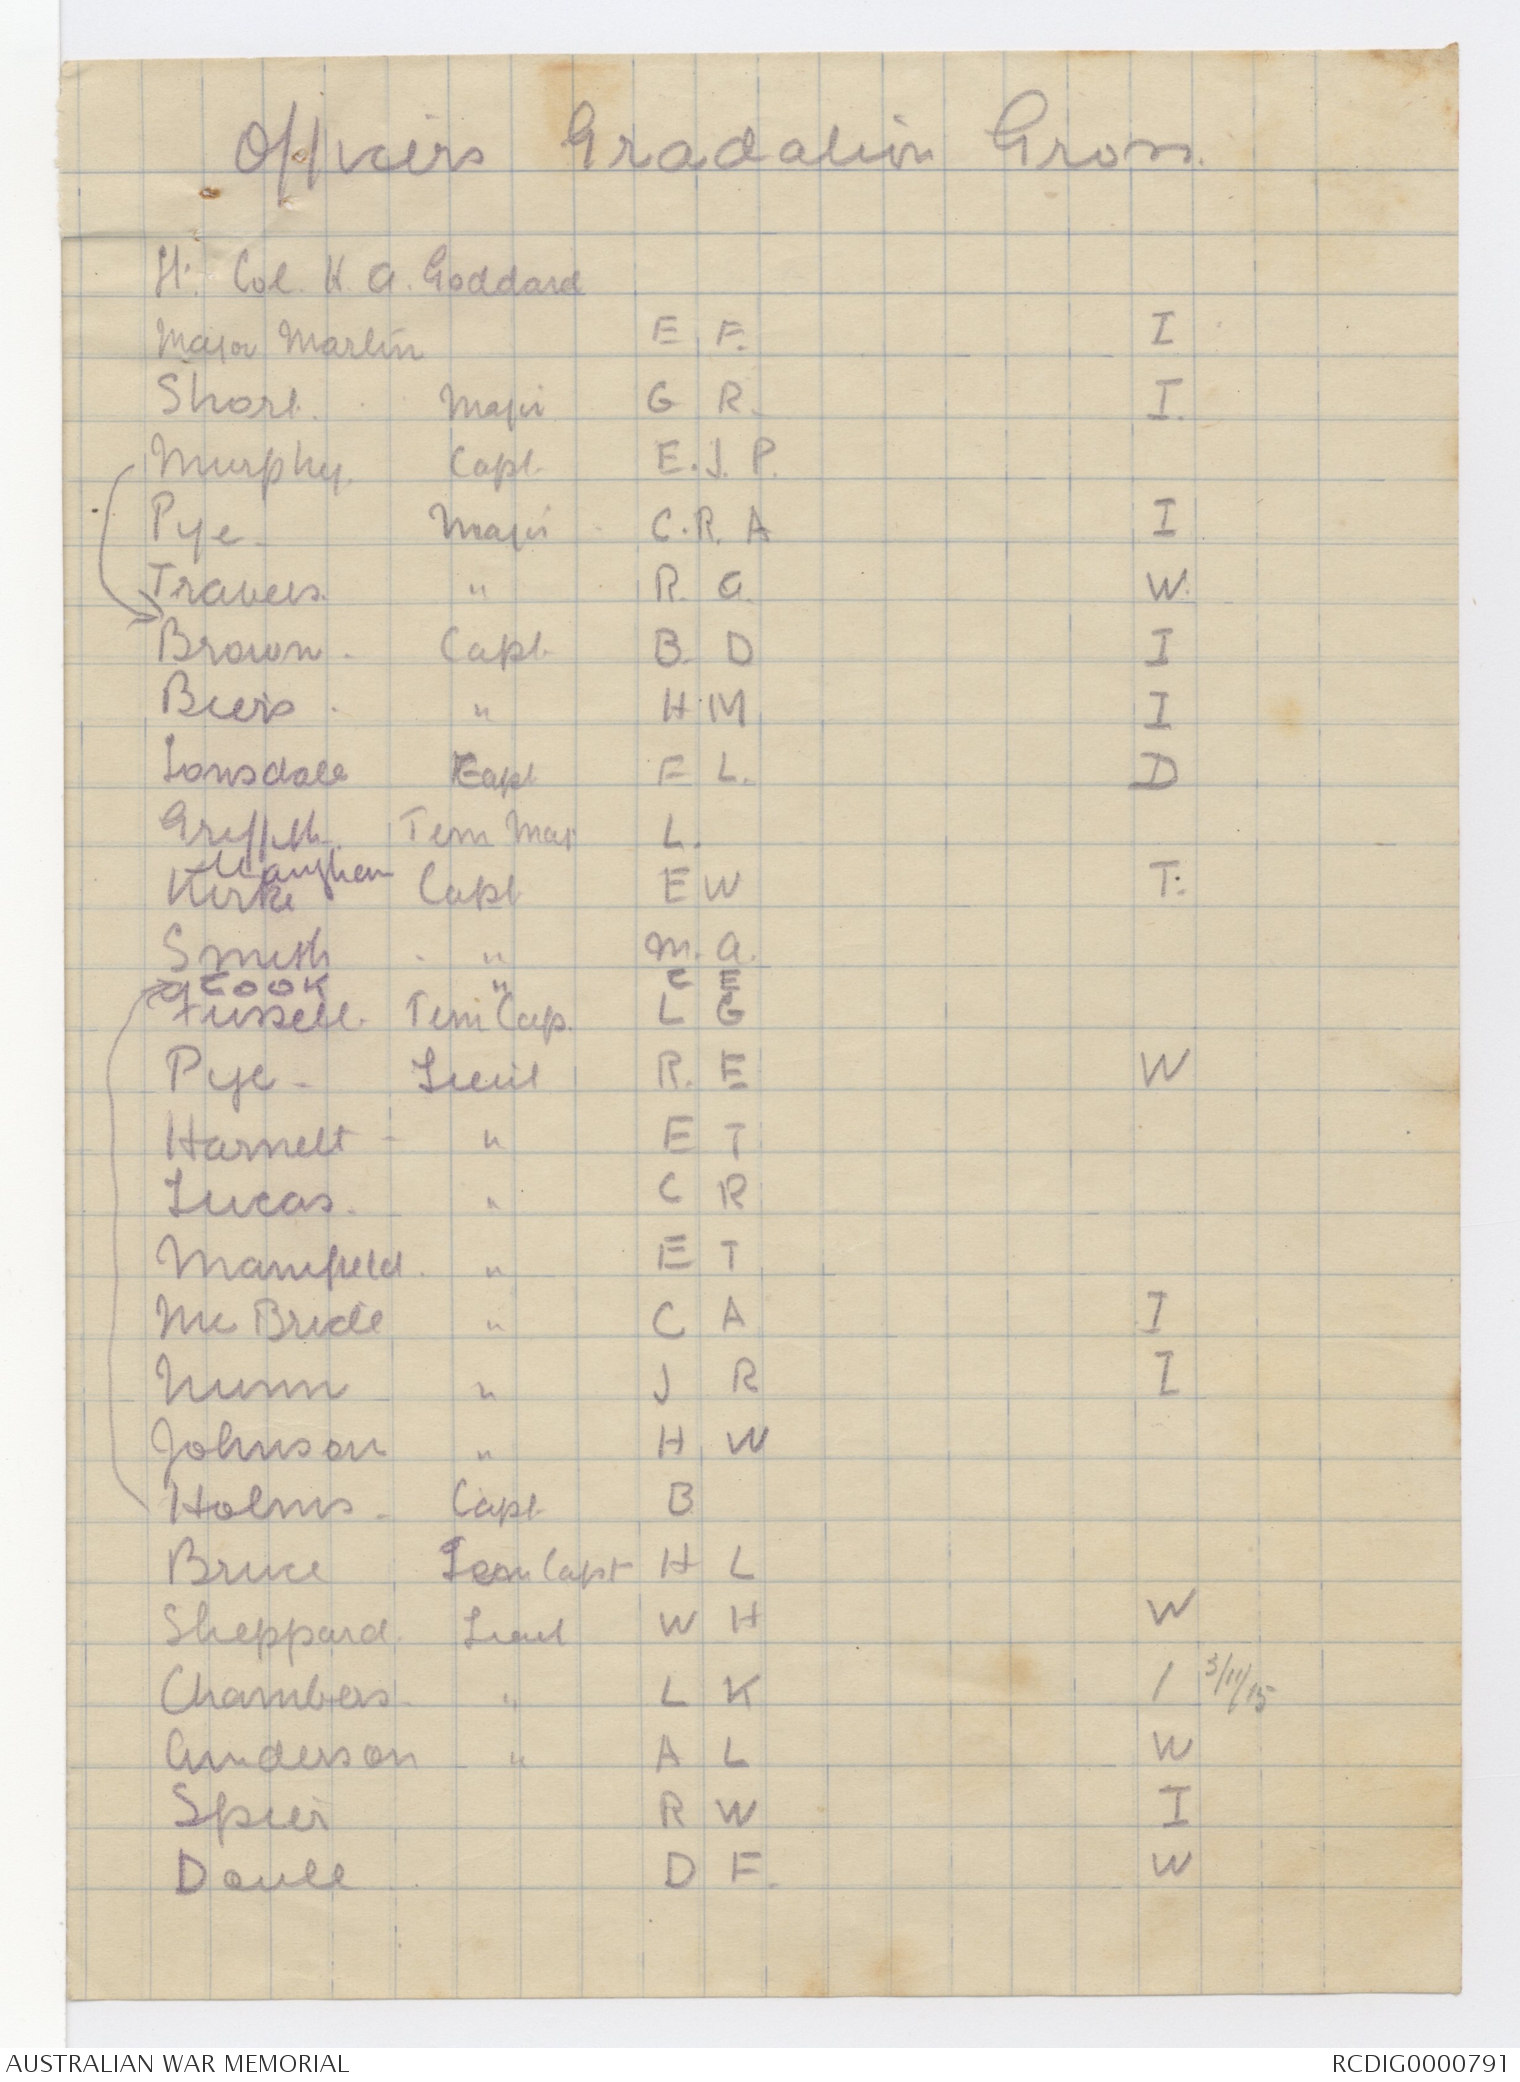 Officers Gradation Gross.
Lt. Col. H. A. Goddard
Major Martin E F. I
Short. Major G R. I.
Murphy. Capt. E. J. P.
Pye - Major - C. R. A I
Travers. " R. A. W.
Brown - Capt. B. D I
Biers - " H. M I
Lonsdale Capt F L. D
Griffith. Tem Maj L.
Maughan
Kirke Capt E W T.
Smith - " M. A.
COOK " C E
Fussell. Tem Cap. L G
Pye - Lieut R. E W
Harnett - " E T
Lucas. " C R
Mansfield. " E T
Mc Bride " C A I
Nunn " J R I
Johnson " H W
Holms - Capt B
Bruce Tem Capt H L
Sheppard. Lieut W H W
Chambers - " L K / 3/11/15
Anderson " A L W
Spier R W I
D F. W
AUSTRALIAN WAR MEMORIAL RCDIG0000791